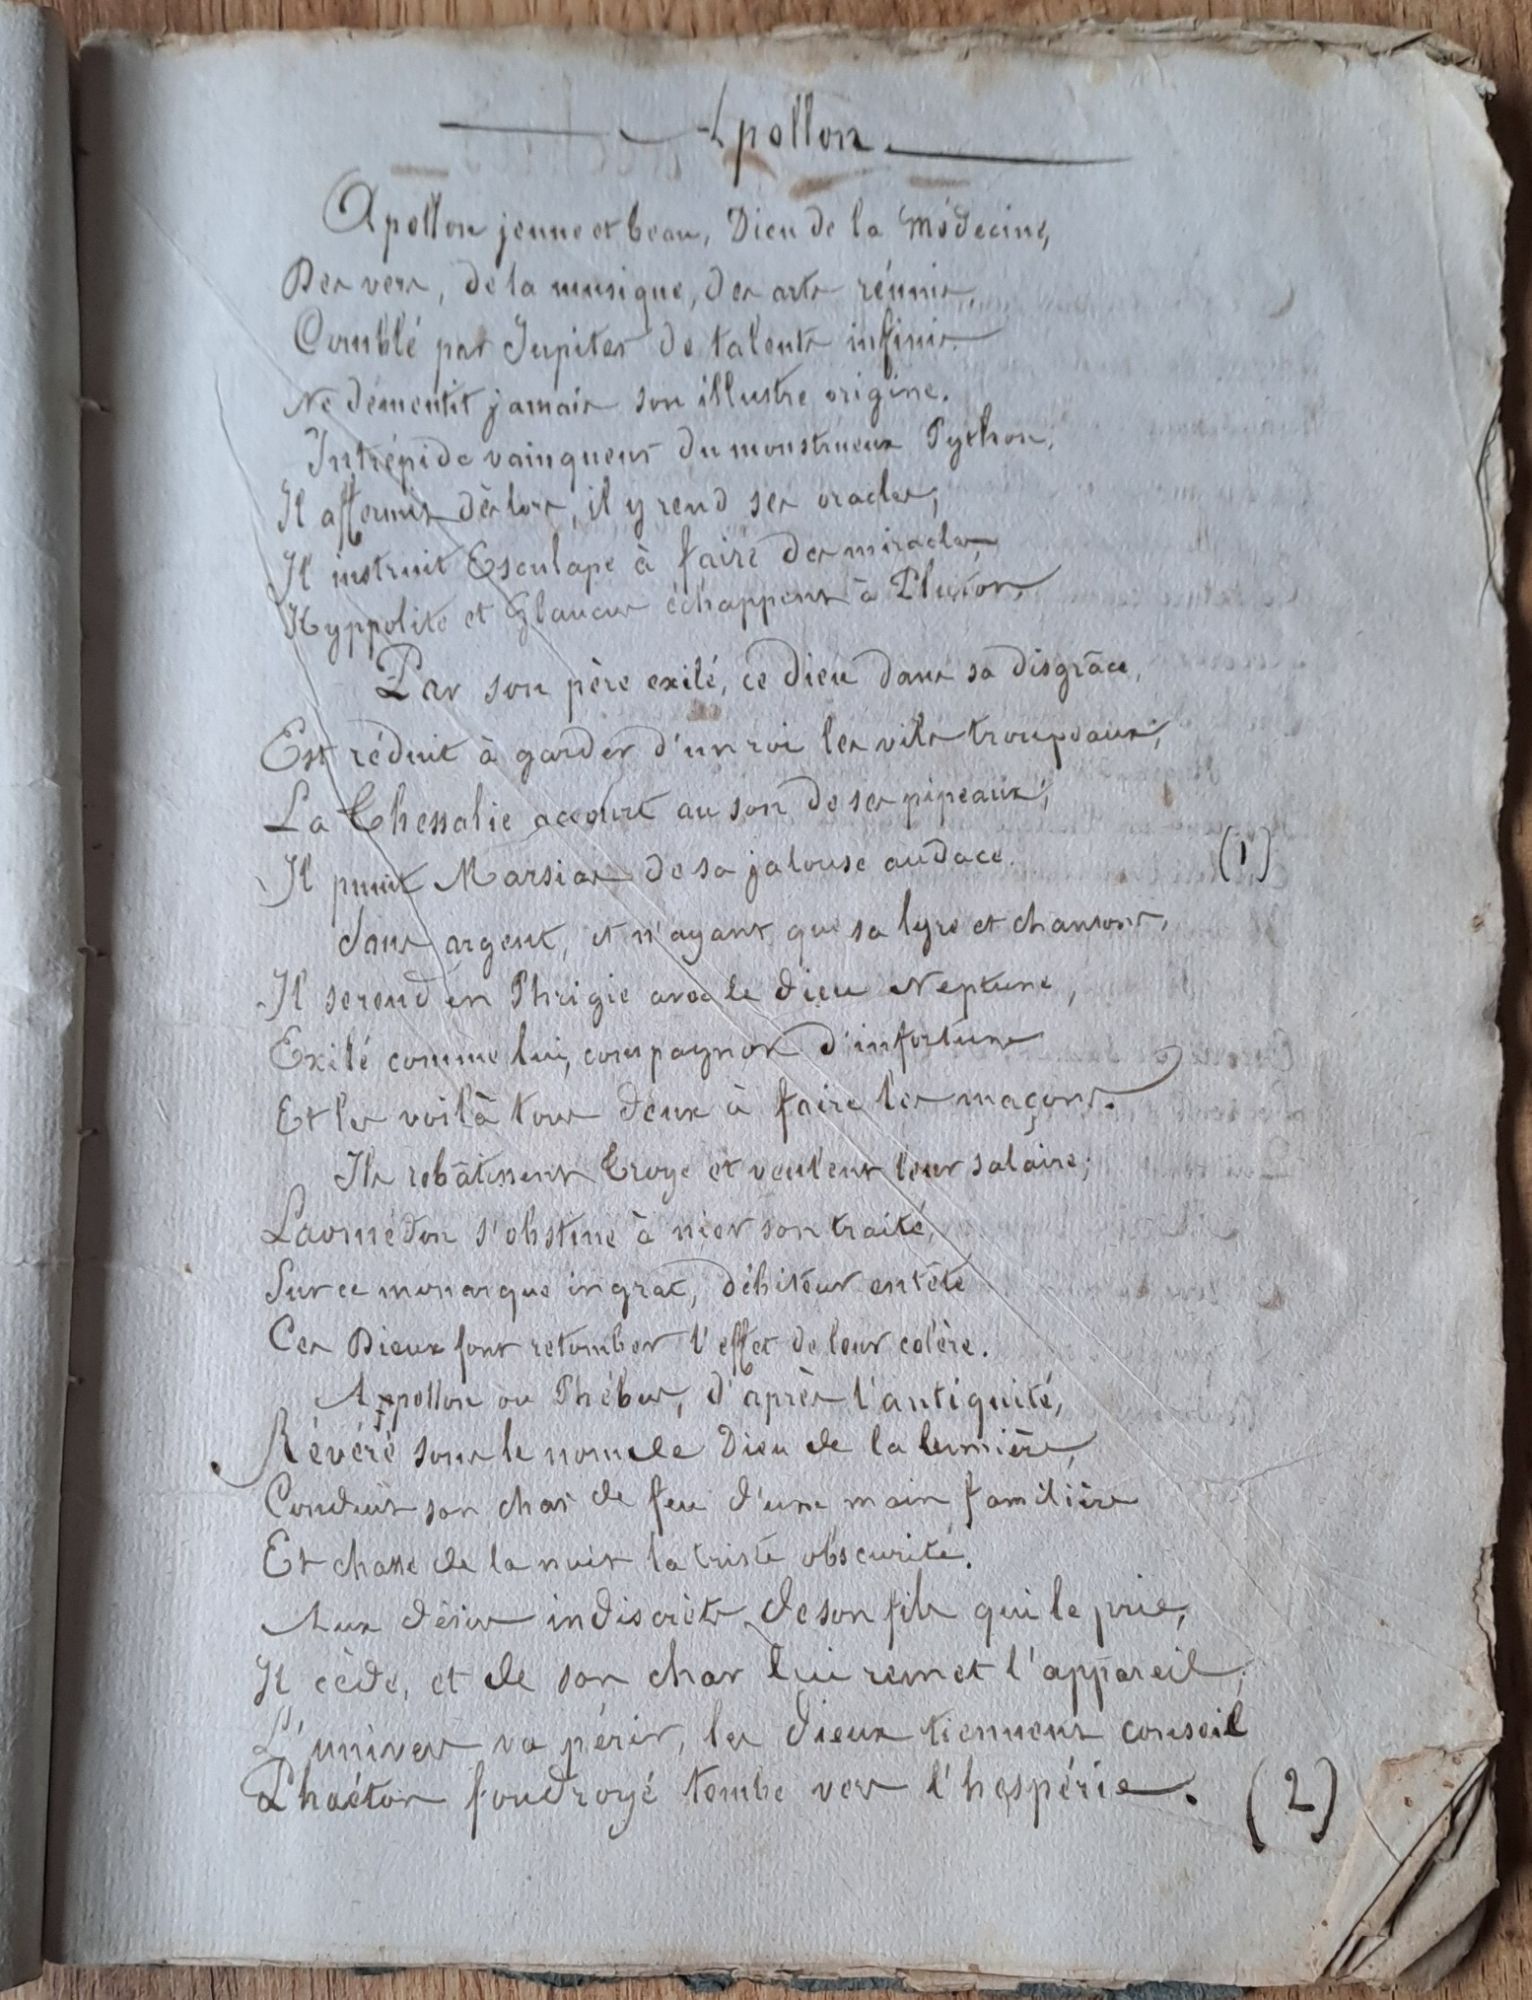 Apollon.
Apollon jeune et beau, Dieu de la Médecine,
Des vers, de la musique, des arts réunis,
Comblé par Jupiter de talents infinis
Ne démentit jamais son illustre origine.
Intrépide vainqueur du monstrueux Python,
Il affermit dès lors, il y rend ses oracles,
Il instruit Esculape à faire des miracles,
Hyppolite et Glaucus échappent à Pluton.
Par son père exilé, ce dieu dans sa disgrâce,
Est réduit à garder d'un roi les vils troupeaux;
La Thessalie accourt au son de ses pipeaux;
Il punit Marsias de sa jalouse audace. (1)
Sans argent, et n'ayant que sa lyre et chansons,
Il se rend en Phrigie avec le dieu Neptune,
Exilé comme lui, compagnon d'infortune
Et les voilà tous deux à faire les maçons.
Ils rebâtissent Troye et veulent leur salaire;
Laomédon s'obstine à nier son traité,
Sur ce monarque ingrat, débiteur entêté
Ces Dieux font retomber l'effet de leur colère.
Appollon ou Phébus, d'après l'antiquité,
Révéré sous le nom de Dieu de la lumière,
Conduit son char de feu d'une main familière
Et chasse de la nuit la triste obscurité.
Aux désirs indiscrets de son fils qui le prie,
Il cède, et de son char lui remet l'appareil;
L'univers va périr, les dieux tiennent conseil
Phaéton foudroyé tombe vers l'hespérie. (2)